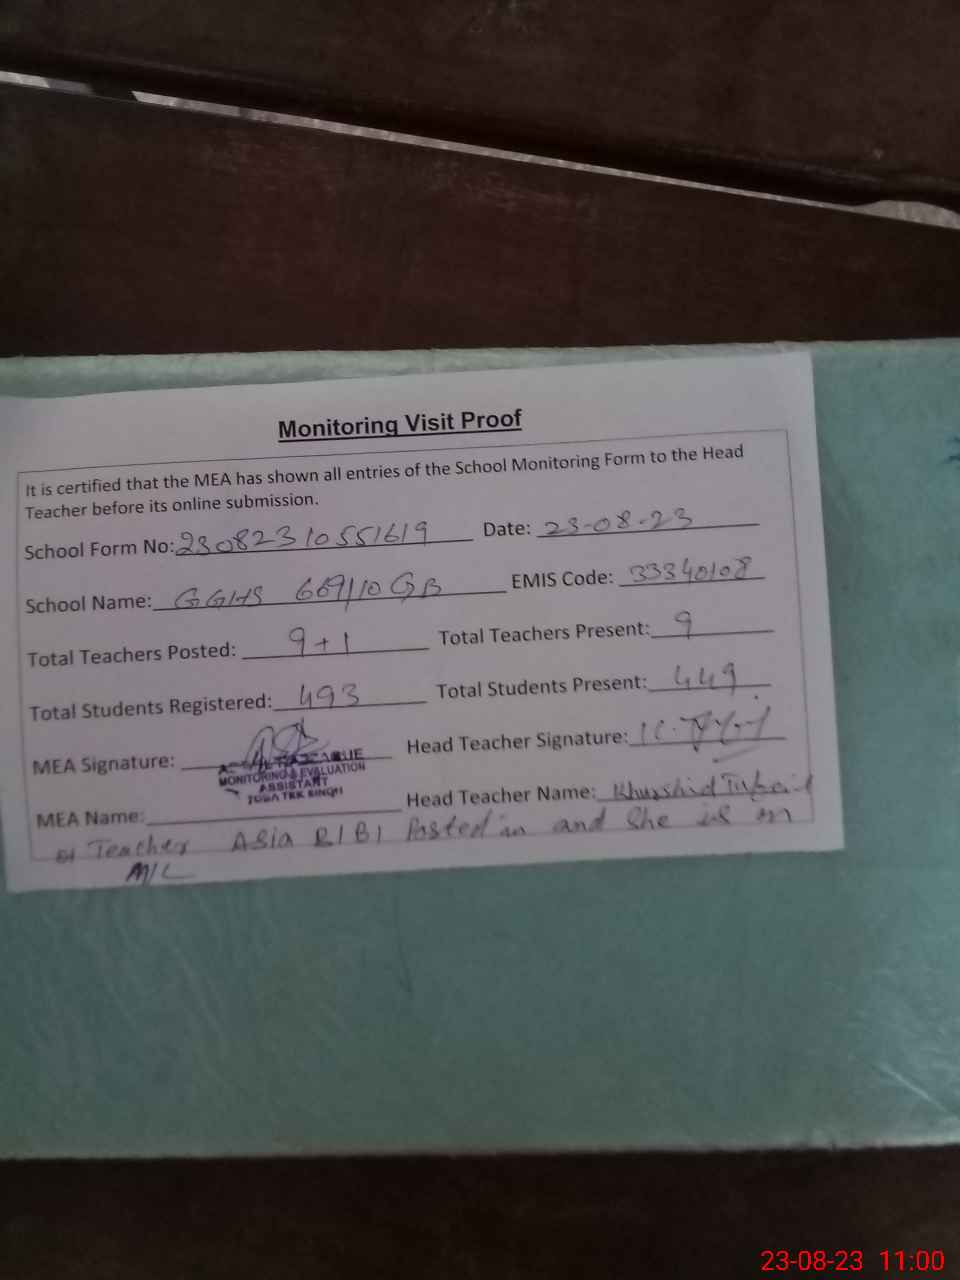 Monitoring Visit Proof
It is certified that the MEA has shown all entries of the School Monitoring Form to the Head
Teacher before its online submission.
School Form No: 23082310551619 Date: 23-08-23
School Name: GGHS 669/10 GB EMIS Code: 33340108
Total Teachers Posted: 9+1 Total Teachers Present: 9
Total Students Registered: 493 Total Students Present: 449
MEA Signature: Head Teacher Signature:
MONITORING & EVALUATION
ASSISTANT
TOBA TEK SINGH
MEA Name: Head Teacher Name: Khurshid
Teacher Asia BIBI Posted in and she is on
M/L
23-08-23 11:00